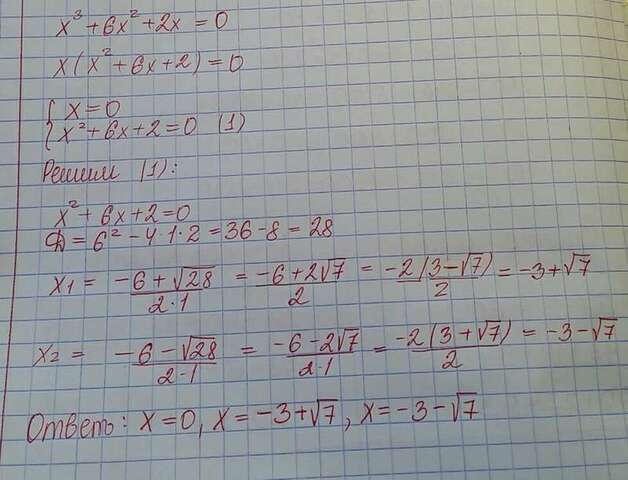 x³+6x²+2x=0
x(x²+6x+2)=0
{x=0
{x²+6x+2=0 (1)
Решим (1):
x²+6x+2=0
Д=6²-4·1·2=36-8=28
x1 = (-6+√28)/(2·1) = (-6+2√7)/2 = (-2(3-√7))/2 = -3+√7
x2 = (-6-√28)/(2·1) = (-6-2√7)/(2·1) = (-2(3+√7))/2 = -3-√7
Ответ: x=0, x=-3+√7, x=-3-√7